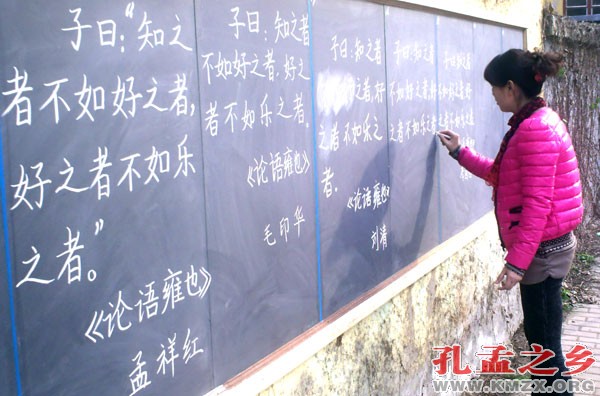 子曰:“知之
者不如好之者,
好之者不如乐
之者。”
《论语雍也》
孟祥红
子曰:知之者
不如好之者,好之
者不如乐之者。
《论语雍也》
毛印华
子曰:知之者
之者,好
之者不如乐之
者。
《论语雍也》
刘清
子曰:知之者
不如好之者,好
之者不如乐之者
孔孟之乡
WWW.KMZX.ORG